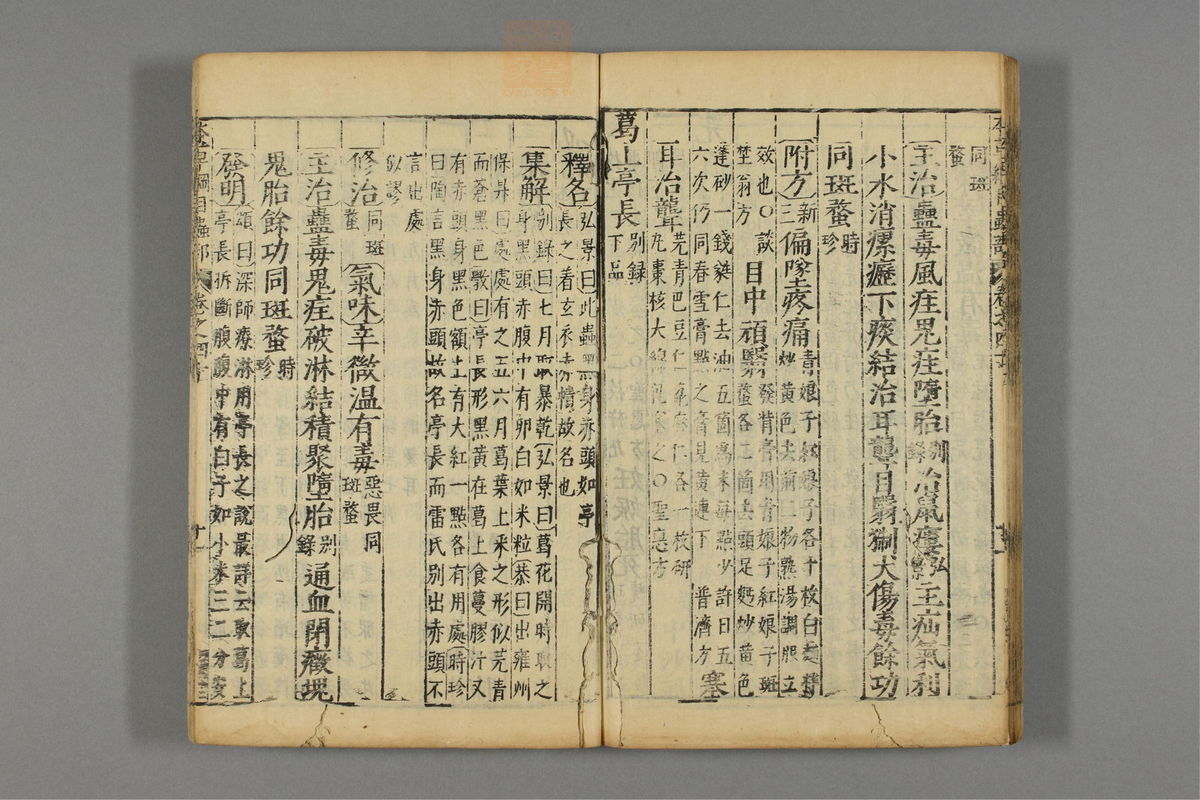 同斑
蝥
主治蠱毒風疰鬼疰墮胎別錄治鼠瘻弘景主疝氣利
小水消瘰癧下痰結治耳聾目翳猘犬傷毒餘功
同斑蝥時珍
附方新三偏墜疼痛青娘子紅娘子各十枚白麪拌
炒黃色去前二物熟湯調服立
效也〇談
埜翁方目中頑翳發背膏用青娘子紅娘子斑
蝥各二箇去頭足麪炒黃色
蓬砂一錢蕤仁去油五箇為末每點少許日五
六次仍同春雪膏點之膏見黃連下普濟方塞
耳治聾芫青巴豆仁蓖麻仁各一枚研
丸棗核大綿包塞之〇聖惠方
葛上亭長別錄
下品
釋名弘景曰此蟲黑身赤頭如亭
長之着玄衣赤幘故名也
集解別錄曰七月取暴乾弘景曰葛花開時取之
身黑頭赤腹中有卵白如米粒恭曰出雍州
保昇曰處處有之五六月葛葉上采之形似芫青
而蒼黑色斅曰亭長形黑黃在葛上食蔓膠汁又
有赤頭身黑色額上有大紅一點各有用處時珍
曰陶言黑身赤頭故名亭長而雷氏別出赤頭不
言出處
似謬
修治同斑
蝥氣味辛微温有毒惡畏同
斑蝥
主治蠱毒鬼疰破淋結積聚墮胎別錄通血閉癥塊
鬼胎餘功同斑蝥時珍
發明頌曰深師療淋用亭長之說最詳云取葛上
亭長折斷腹腹中有白子如小米三二分安